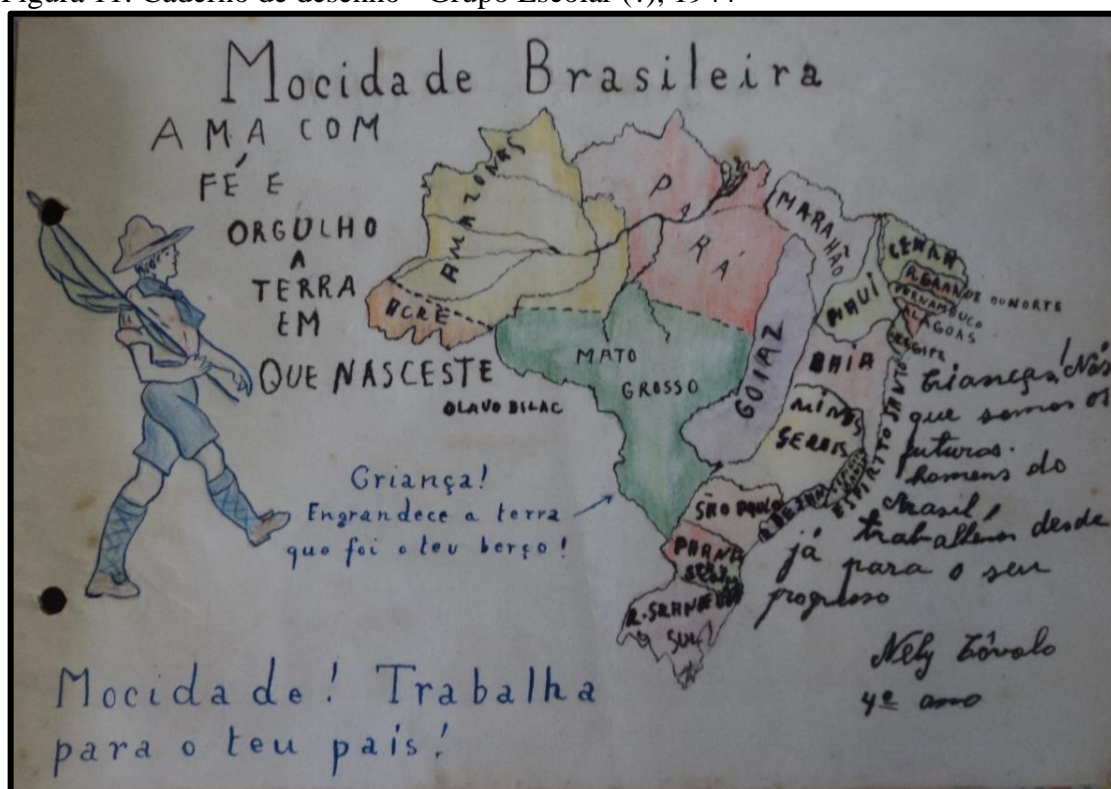 Figura 11: Caderno de desenho - Grupo Escolar (?), 1944
Mocidade Brasileira
AMA COM
FÉ E
ORGULHO
A
TERRA
EM
QUE NASCESTE
OLAVO BILAC
AMAZONAS
ACRE
PARÁ
MARANHÃO
PIAUÍ
CEARÁ
R. GRANDE DO NORTE
PERNAMBUCO
ALAGOAS
SERGIPE
BAIA
MATO
GROSSO
GOIAZ
MINAS
GERAIS
ESPIRITO SANTO
SÃO PAULO
PARANÁ
R. GRANDE
SUL
Criança!
Engrandece a terra
que foi o teu berço!
Crianças! Nós
que somos os
futuros
homens do
Brasil,
trabalhemos desde
já para o seu
progresso
Nely
4º ano
Mocidade! Trabalha
para o teu país!